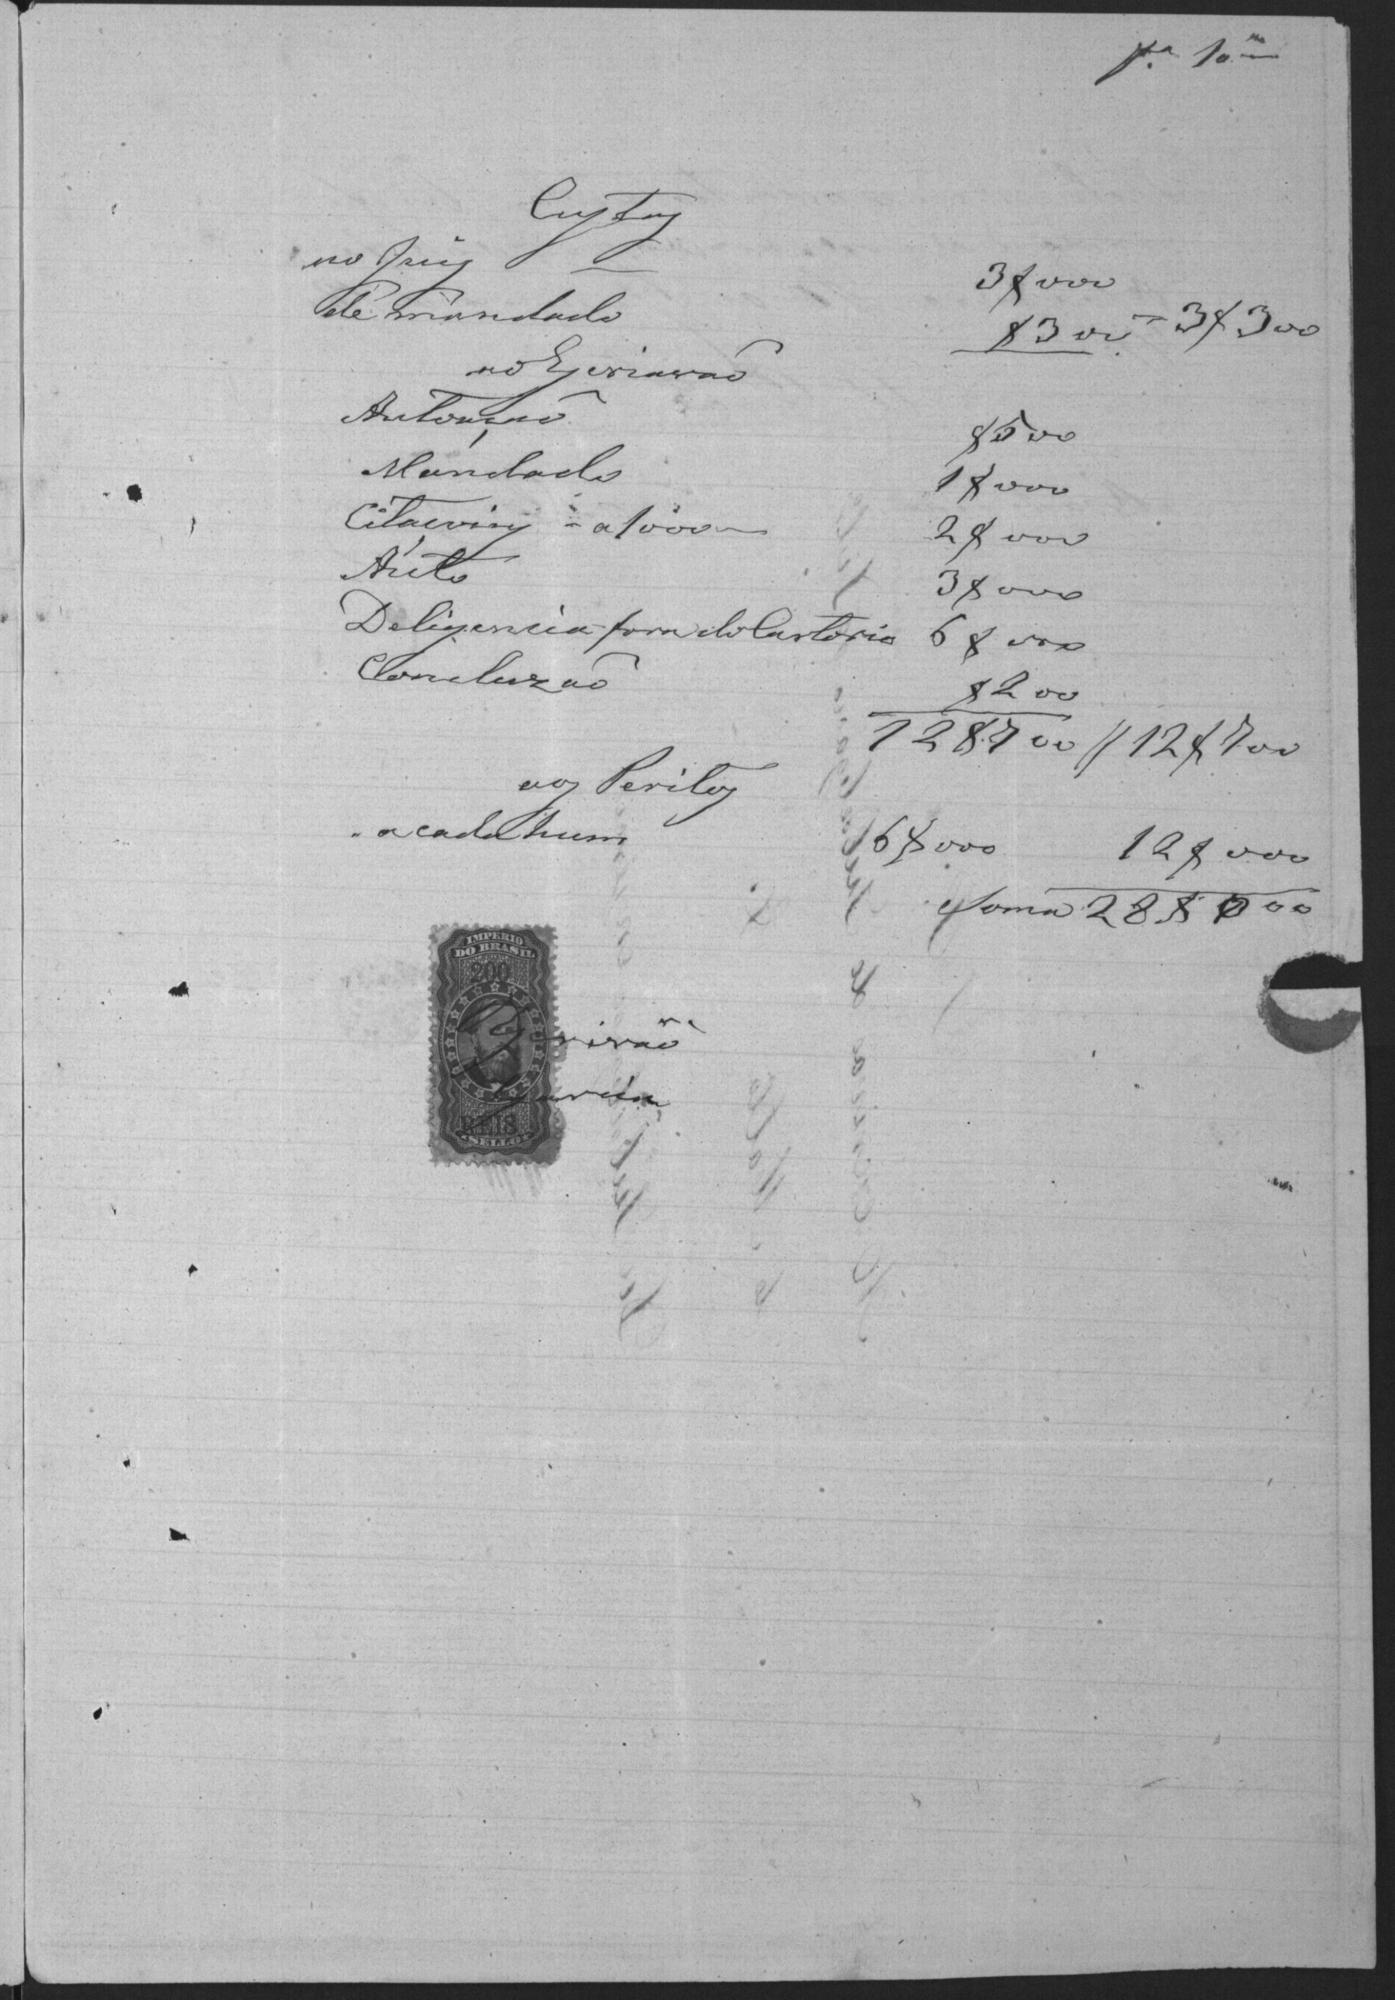 Custas
ao Juiz 3$000
de mandado $300 = 3$300
ao Escrivaõ
Autoaçaõ $500
Mandado 1$000
Citacoins - a 1000 2$000
Auto 3$000
Deligencia fora do Cartorio 6$000
Concluzaõ $200
12$700 // 12$700
aos Peritos
a cada hum 6$000 12$000
Soma 28$000
IMPERIO
DO BRASIL
200
Escrivaõ
Garcia
REIS
SELLO